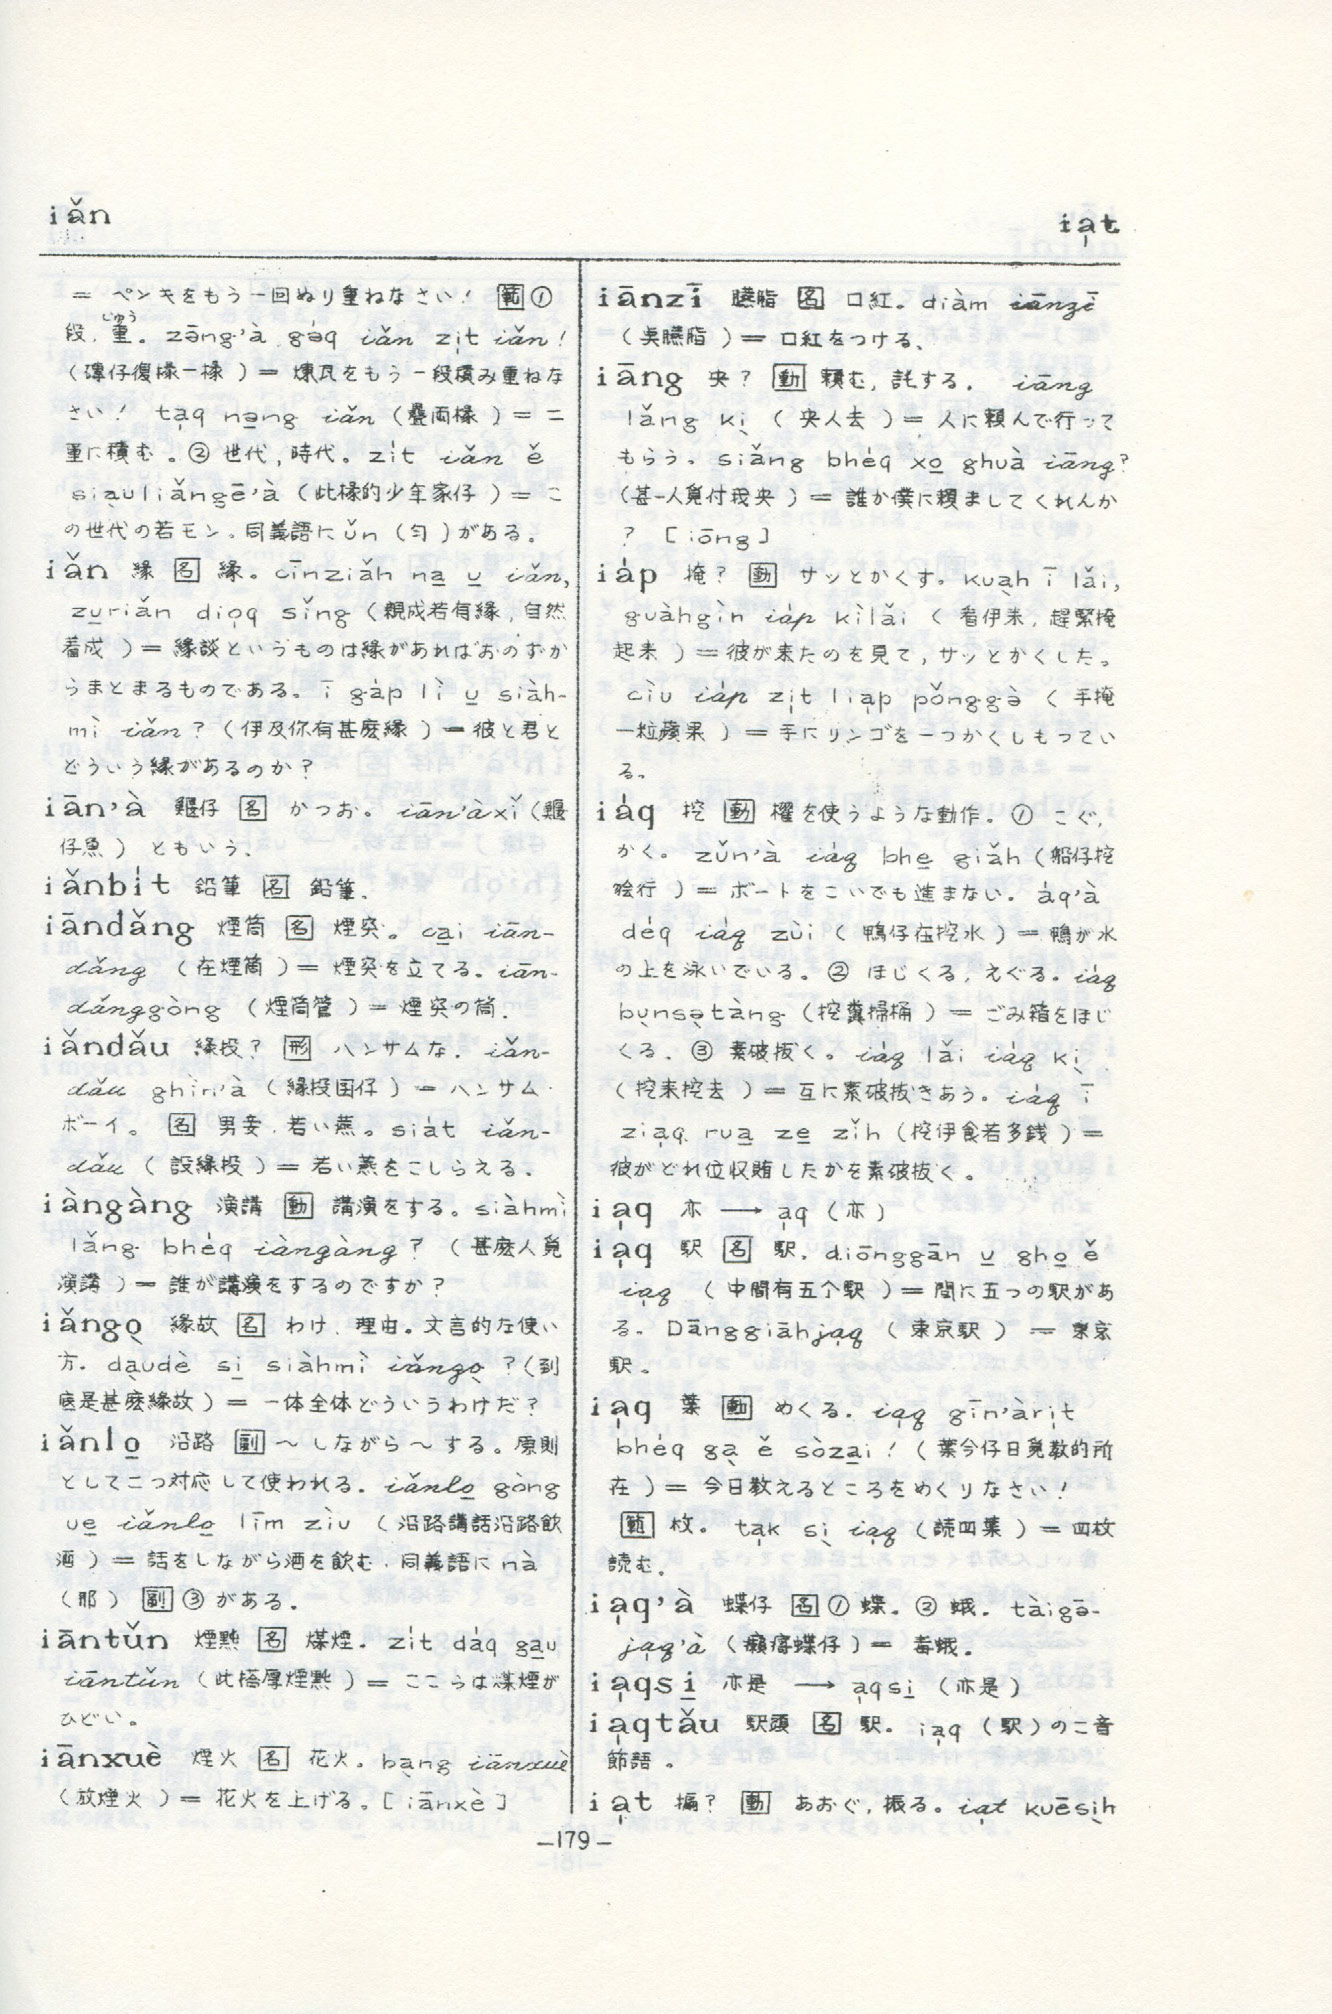 iǎn
ia̩t
= ペンキをもう一回ぬり重ねなさい! 範①
じゅう
段,重。 zāng'à gə̍q iǎn zi̍t iǎn!
(磚仔復椽一椽)= 煉瓦をもう一段積み重ねな
さい! ta̩q nə̱ng iǎn (疊両椽)= 二
重に積む。② 世代,時代。 zi̍t iǎn ě
siàuliǎngē'à (此椽的少年家仔)= こ
の世代の若モン。同義語に ǔn (匀)がある。
iǎn 縁 名 縁。 cīnziǎh na̱ u̱ iǎn,
zu̱riǎn dio̩q sǐng (親成若有縁,自然
着成)= 縁談というものは縁があればおのずか
らまとまるものである。 ī ga̍p lì u̱ siàh-
mì iǎn? (伊及你有甚麽縁)= 彼と君と
どういう縁があるのか?
iān'à 鰋仔 名 かつお。 iān'àxǐ (鰋
仔魚) ともいう.
iǎnbi̍t 鉛筆 名 鉛筆.
iāndǎng 煙筒 名 煙突。 ca̱i iān-
dǎng (在煙筒)= 煙突を立てる. iān-
dǎnggòng (煙筒管)= 煙突の筒.
iǎndǎu 縁投? 形 ハンサムな. iǎn-
dǎu ghìn'à (縁投囝仔)= ハンサム・
ボーイ。 名 男妾.若い燕。 sia̍t iǎn-
dǎu (設縁投)= 若い燕をこしらえる.
iàngàng 演講 動 講演をする。 siàhmì
lǎng bhe̍q iàngàng? (甚麽人覓
演講)= 誰が講演をするのですか?
iǎngo̩ 縁故 名 わけ、理由。文言的な使い
方. da̩udè si̱ siàhmì iǎngo̩?(到
底是甚麽縁故)= 一体全体どういうわけだ?
iǎnlo̱ 沿路 副 ～しながら～する。原則
として二つ対応して使われる. iǎnlo̱ gòng
ue̱ iǎnlo̱ līm ziù (沿路講話沿路飲
酒)= 話をしながら酒を飲む.同義語に nà
(那) 副 ③がある.
iāntǔn 煙黗 名 煤煙. zi̍t da̍q ga̱u
iāntǔn (此搭厚煙黗)= ここらは煤煙が
ひどい。
iānxuè 煙火 名 花火. ba̩ng iānxuè
(放煙火)= 花火を上げる。[iānxè]
iānzī 臙脂 名 口紅。 diàm iānzī
(臭臙脂)= 口紅をつける、
iāng 央? 動 頼む,託する. iāng
lǎng ki̩ (央人去)= 人に頼んで行って
もらう. siǎng bhe̍q xo̱ ghuà iāng?
(甚一人覓付我央)= 誰か僕に頼ましてくれんか
? [iōng]
ia̍p 掩? 動 サッとかくす。 kua̩h ī lǎi,
guàhgìn ia̍p kìlǎi (看伊来,趕緊掩
起来)=彼が来たのを見て,サッとかくした。
cìu ia̍p zi̩t lia̩p pǒnggə̀ (手掩
一粒蘋果)= 手にリンゴを一つかくしもってい
る。
ia̍q 挖 動 櫂を使うような動作。① こぐ,
かく。 zǔn'à ia̍q bhe̱ giǎh (船仔挖
𣍐行)= ボートをこいでも進まない. a̍q'à
de̍q ia̍q zùi (鴨仔在挖水)= 鴨が水
の上を泳いでいる。② ほじくる,えぐる. ia̍q
bu̩nsə̩tàng (挖糞掃桶)= ごみ箱をほじ
くる. ③ 素破抜く。 ia̍q lǎi ia̍q ki̩
(挖来挖去)= 互に素破抜きあう。 ia̍q ī
zia̩q rua̱ ze̱ zǐh (挖伊食若多銭)=
彼がどれ位収賄したかを素破抜く。
ia̩q 亦 → a̩q (亦)
ia̩q 駅 名 駅. diōnggān u̱ gho̱ ě
ia̩q (中間有五个駅)= 間に五つの駅があ
る. Dānggiāhja̩q (東京駅) = 東京
駅。
ia̩q 葉 動 めくる. ia̩q gīn'àri̩t
bhe̍q ga̩ ě sòza̱i! (葉今仔日覓教的所
在)= 今日教えるところをめくりなさい!
範 枚。 ta̩k si̩ ia̩q (読四葉)= 四枚
読む.
ia̩q'à 蝶仔 名 ① 蝶。② 蛾. tàigə̄-
ja̩q'à (癩𤺪蝶仔)= 毒蛾.
ia̩qsi̱ 亦是 → a̩qsi̱ (亦是)
ia̩qtǎu 駅頭 名 駅. ia̩q (駅)の二音
節語。
ia̩t 搧? 動 あおぐ,振る。 ia̩t kuēsi̩h
—179—